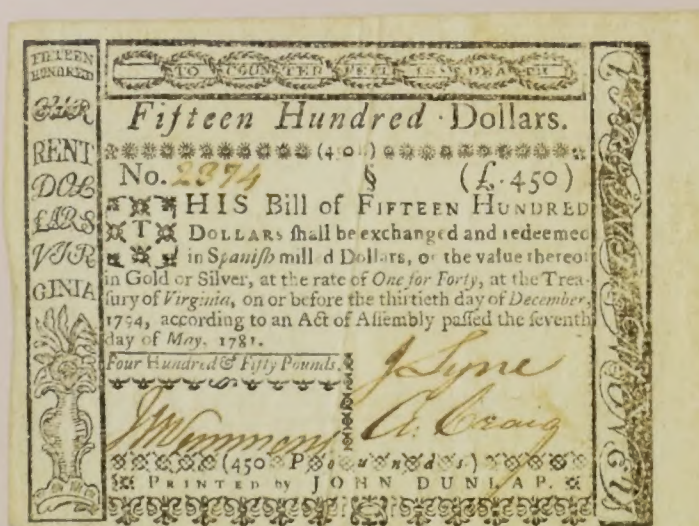 FIFTEEN
HUNDRED
CUR
RENT
DOL
LARS
VIR
GINIA
TO COUNTERFEIT IS DEATH
Fifteen Hundred Dollars.
No. 2374 § (£. 450)
THIS Bill of FIFTEEN HUNDRED
DOLLARS ſhall be exchanged and redeemed
in Spaniſh mill d Dollars, or the value thereof
in Gold or Silver, at the rate of One for Forty, at the Trea-
ſury of Virginia, on or before the thirtieth day of December,
1794, according to an Act of Aſſembly paſſed the ſeventh
day of May, 1781.
Four Hundred & Fifty Pounds.
J Lyne
A. Craig
(450 Pounds)
PRINTED by JOHN DUNLAP.